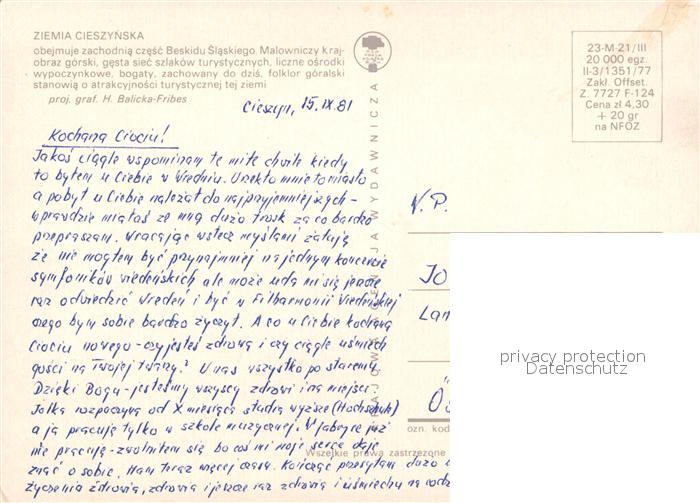 ZIEMIA CIESZYŃSKA
obejmuje zachodnią część Beskidu Śląskiego. Malowniczy kraj-
obraz górski, gęsta sieć szlaków turystycznych, liczne ośrodki
wypoczynkowe, bogaty, zachowany do dziś, folklor góralski
stanowią o atrakcyjności turystycznej tej ziemi
proj. graf. H. Balicka-Fribes
23-M-21/III
20 000 egz.
II-3/1351/77
Zakł. Offset.
Z. 7727 F-124
Cena zł 4,30
+ 20 gr
na NFOZ
Cieszyn, 15.IX.81
Kochana Ciociu!
Jakoś ciągle wspominam te miłe chwile kiedy
to byłem u Ciebie w Wiedniu. Urzekło mnie to miasto
a pobyt u Ciebie należał do najprzyjemniejszych -
wprawdzie miałaś ze mną dużo trosk za co bardzo
przepraszam. Wracając wstecz myślami żałuję
że nie mogłem być przynajmniej na jednym koncercie
symfoników wiedeńskich ale może uda mi się jeszcze
raz odwiedzić Wiedeń i być w Filharmonii Wiedeńskiej
czego bym sobie bardzo życzył. A co u Ciebie kochana
Ciociu nowego - czy jesteś zdrową i czy ciągle uśmiech
gości na Twojej twarzy? U nas wszystko po staremu
Dzięki Bogu - jesteśmy wszyscy zdrowi i na miejscu.
Jolka rozpoczyna od X miesiąca studia wyższe (Hochschule)
a ja pracuję tylko w szkole muzycznej. W fabryce już
nie pracuję - zwolniłem się bo coś mi moje serce daje
znać o sobie. Mam teraz więcej czasu. Kończąc przesyłam dużo
życzenia zdrowia, zdrowia i jeszcze raz zdrowia i uśmiechu na
KRAJOWA AGENCJA WYDAWNICZA
W.P.
Jo
Lan
Ös
ozn. kod
Wszelkie prawa zastrzeżone
privacy protection
Datenschutz